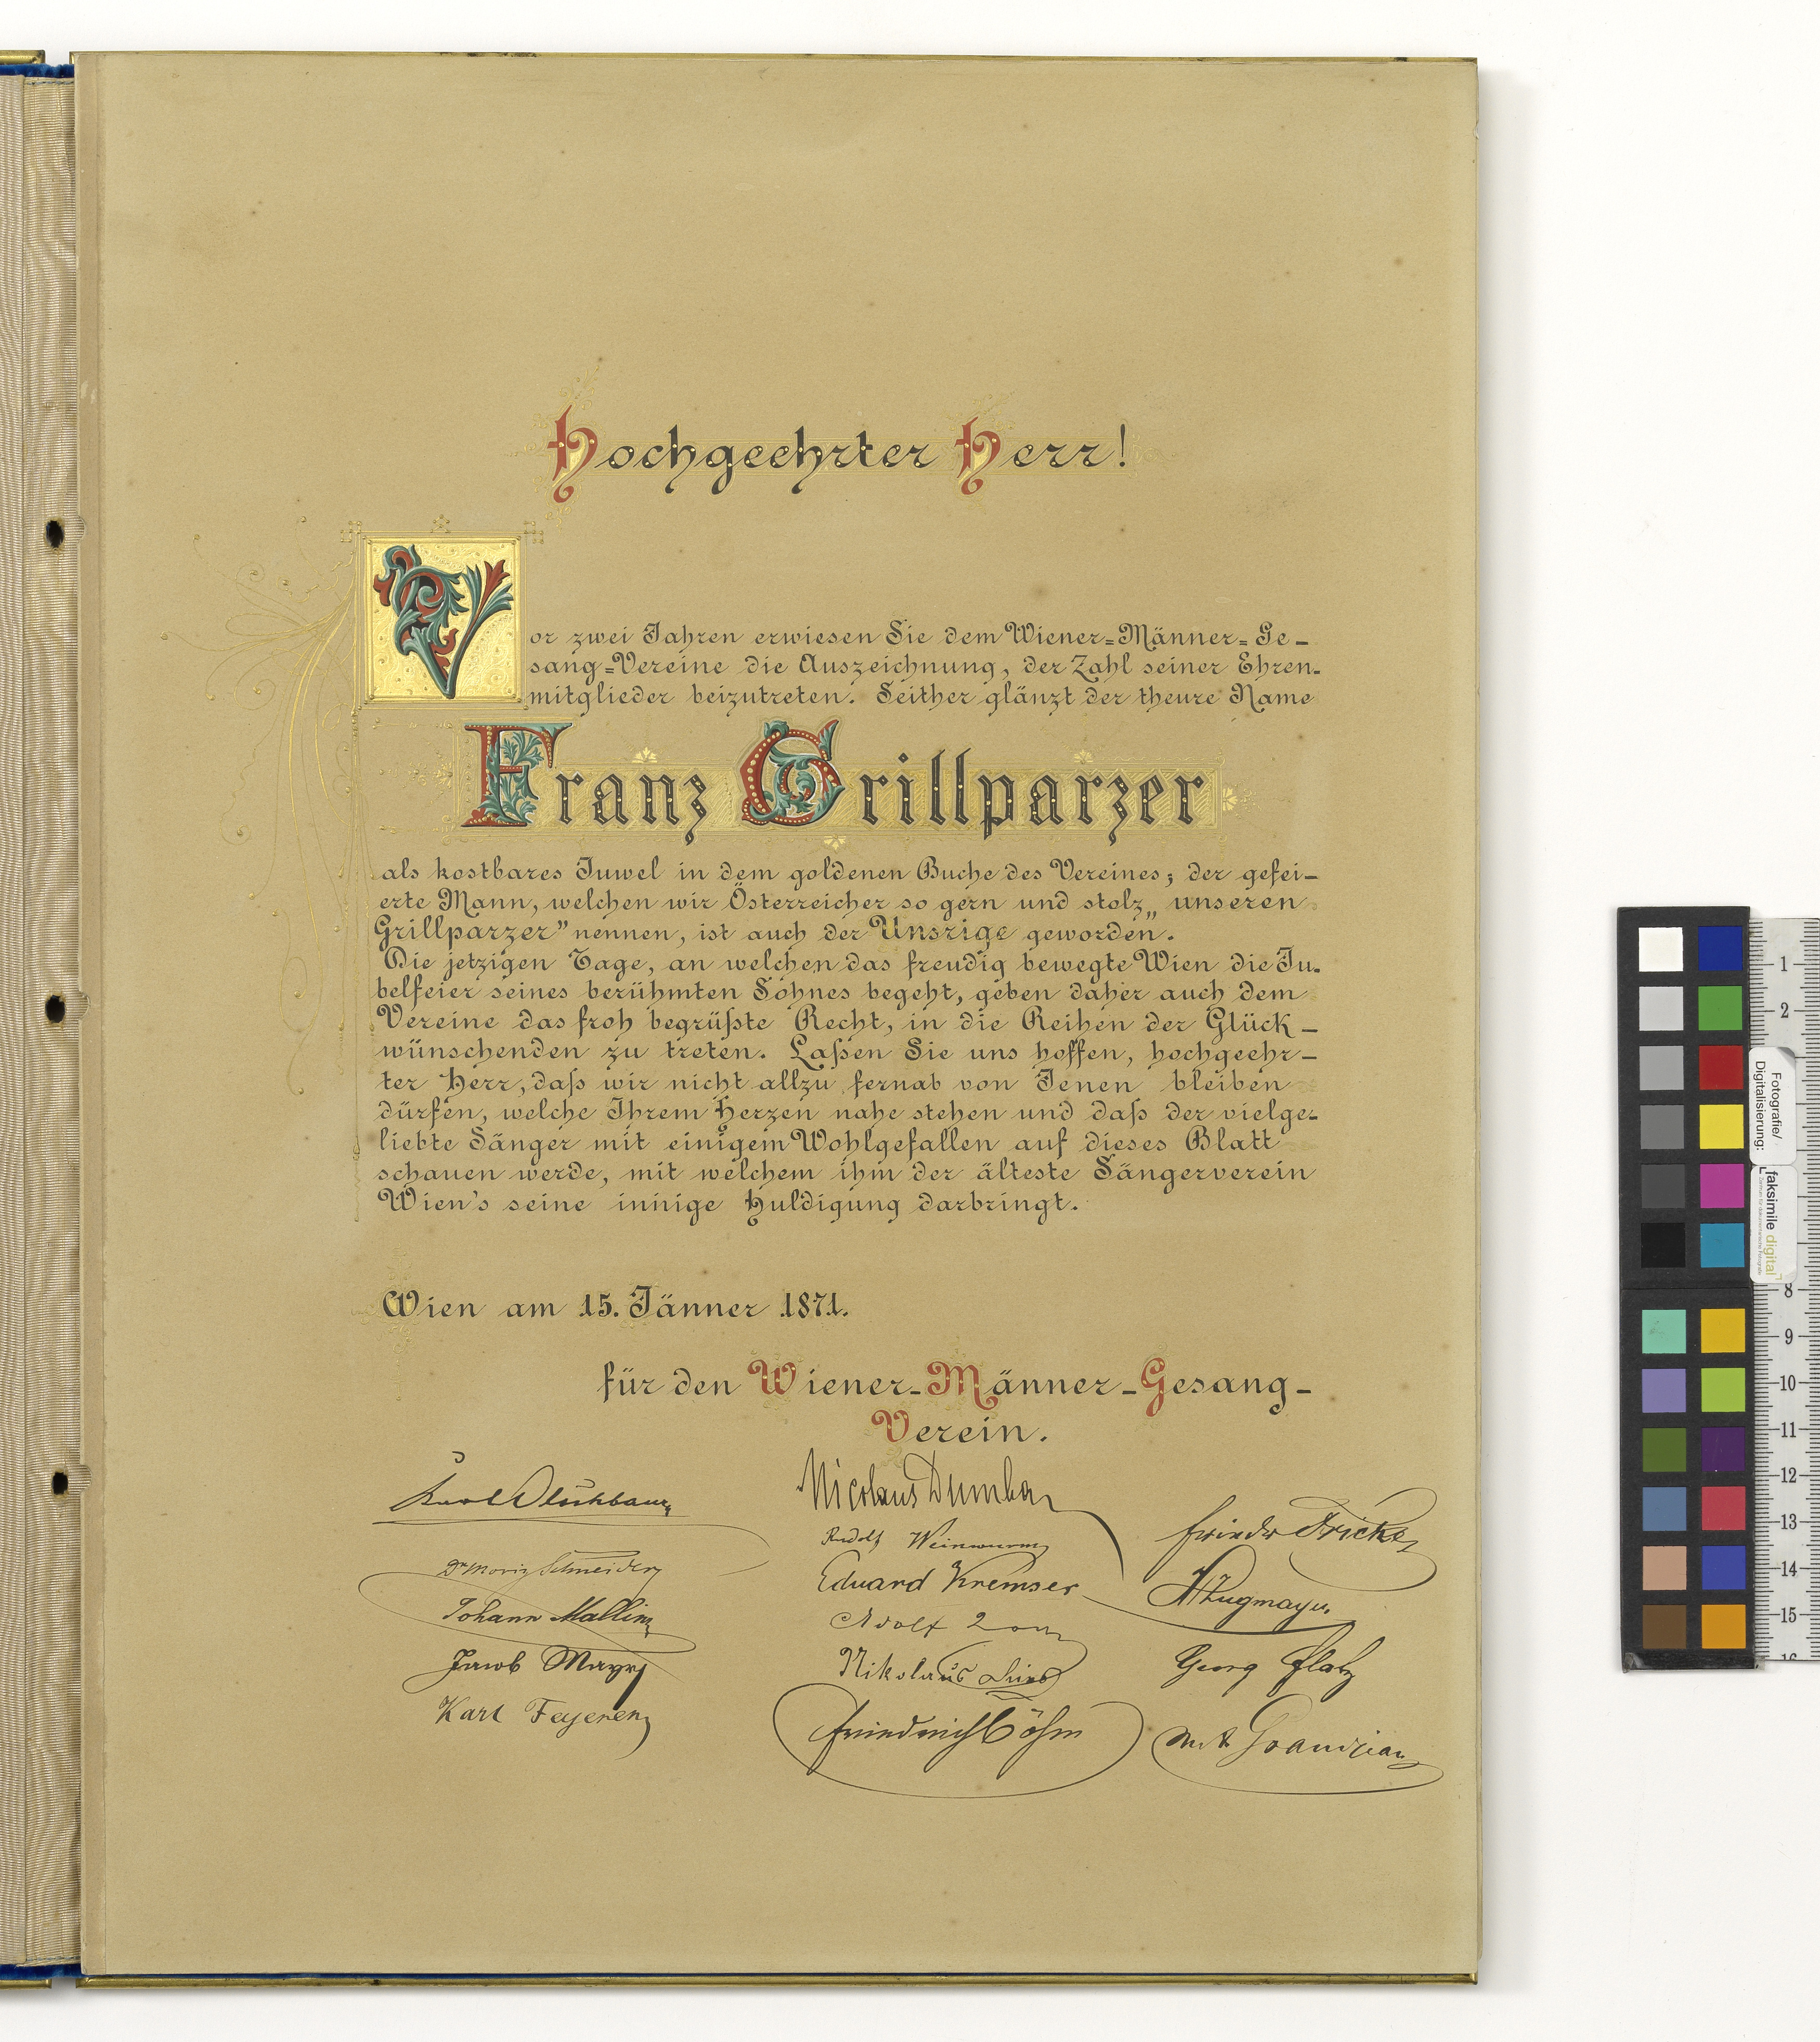 Hochgeehrter Herr!
Vor zwei Jahren erwiesen Sie dem Wiener=Männer=Ge-
sang=Vereine die Auszeichnung, der Zahl seiner Ehren-
mitglieder beizutreten. Seither glänzt der theure Name
Franz Grillparzer
als kostbares Juwel in dem goldenen Buche des Vereines; der gefei-
erte Mann, welchen wir Österreicher so gern und stolz „unseren
Grillparzer" nennen, ist auch der Unsrige geworden.
Die jetzigen Tage, an welchen das freudig bewegte Wien die Ju-
belfeier seines berühmten Sohnes begeht, geben daher auch dem
Vereine das froh begrüßte Recht, in die Reihen der Glück-
wünschenden zu treten. Laßen Sie uns hoffen, hochgeehr-
ter Herr, daß wir nicht allzu fernab von Jenen bleiben
dürfen, welche Ihrem Herzen nahe stehen und daß der vielge-
liebte Sänger mit einigem Wohlgefallen auf dieses Blatt
schauen werde, mit welchem ihm der älteste Sängerverein
Wien's seine innige Huldigung darbringt.
Wien am 15. Jänner 1871.
für den Wiener-Männer-Gesang-
Verein.
Karl Olschbaur
Dr Moriz Schneider
Johann Mallin
Jacob Mayr
Karl Feyerer
Nicolaus Dumba
Rudolf Weinwurm
Eduard Kremser
Adolf
Nikolaus
Friedrich Böhm
Friedr Fricke
Zugmayer
Georg
1
2
8
9
10
11
12
13
14
15
16
Fotografie/
Digitalisierung:
faksimile digital